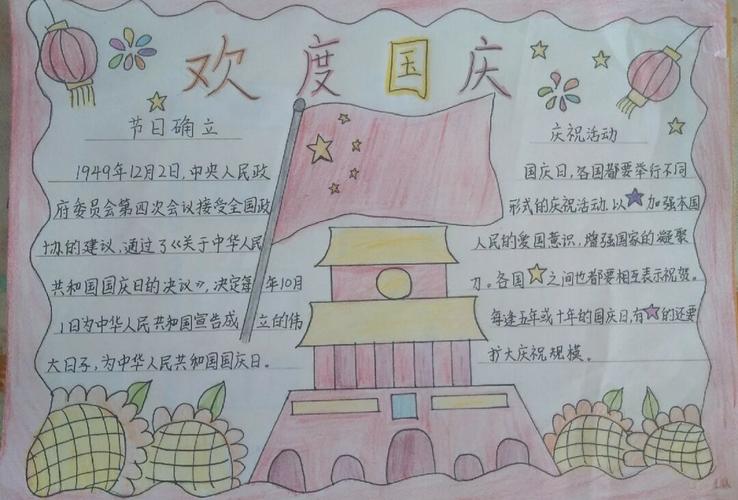 欢度国庆
节日确立
1949年12月2日,中央人民政
府委员会第四次会议接受全国政
协的建议,通过了《关于中华人民
共和国国庆日的决议》,决定 年10月
1日为中华人民共和国宣告成立的伟
大日子,为中华人民共和国国庆日。
庆祝活动
国庆日,各国都要举行不同
形式的庆祝活动.以加强本国
人民的爱国意识,增强国家的凝聚
力。各国之间也都要相互表示祝贺。
每逢五年或十年的国庆日,有的还要
扩大庆祝规模。